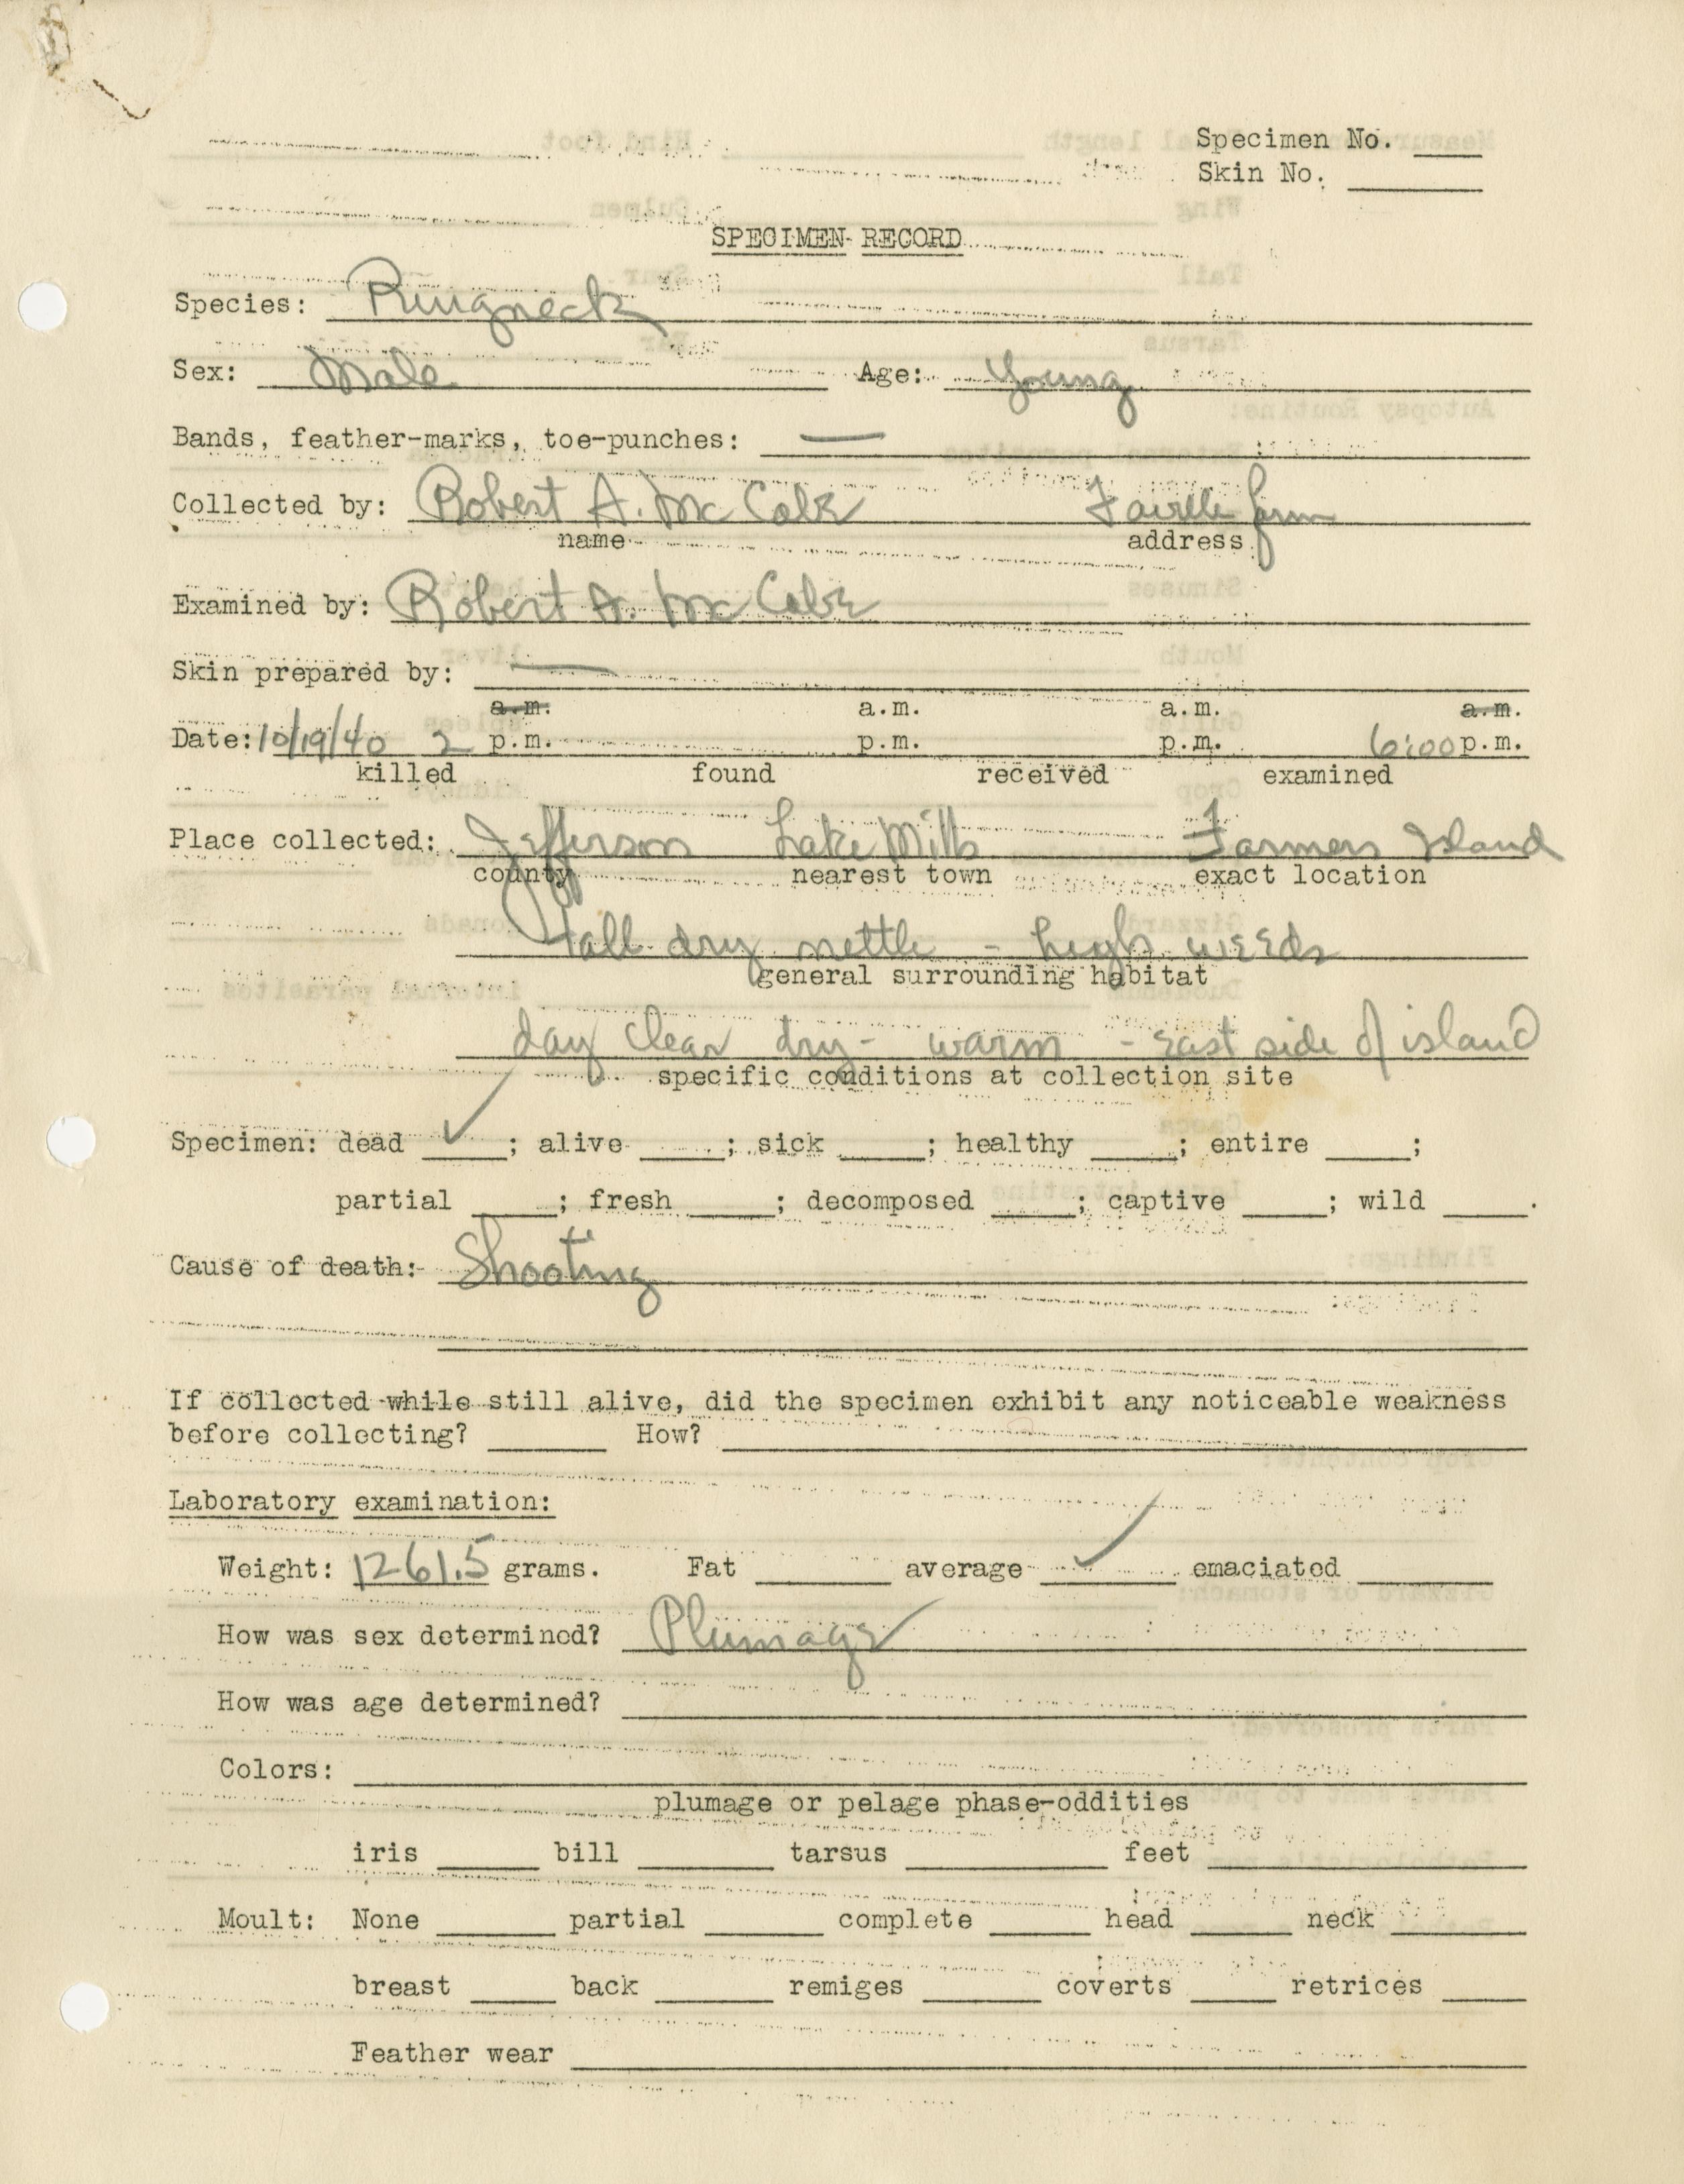 Specimen No. ____
Skin No. ____
SPECIMEN RECORD
Species: Ringneck
Sex: Male Age: Young
Bands, feather-marks, toe-punches: —
Collected by: Robert A. McCabe Faville farm
name address
Examined by: Robert A. McCabe
Skin prepared by: —
a.m. a.m. a.m. a.m.
Date: 10/19/40 2 p.m. p.m. p.m. 6:00 p.m.
killed found received examined
Place collected: Jefferson Lake Mills Farmers Island
county nearest town exact location
tall dry nettle - high weeds
general surrounding habitat
day clear dry - warm - east side of island
specific conditions at collection site
Specimen: dead ✓; alive ____; sick ____; healthy ____; entire ____;
partial ____; fresh ____; decomposed ____; captive ____; wild ____.
Cause of death: Shooting
If collected while still alive, did the specimen exhibit any noticeable weakness
before collecting? ____ How? ____
Laboratory examination:
Weight: 1261.5 grams. Fat ____ average ✓ emaciated ____
How was sex determined? Plumage
How was age determined? ____
Colors: ____
plumage or pelage phase-oddities
iris ____ bill ____ tarsus ____ feet ____
Moult: None ____ partial ____ complete ____ head ____ neck ____
breast ____ back ____ remiges ____ coverts ____ retrices ____
Feather wear ____